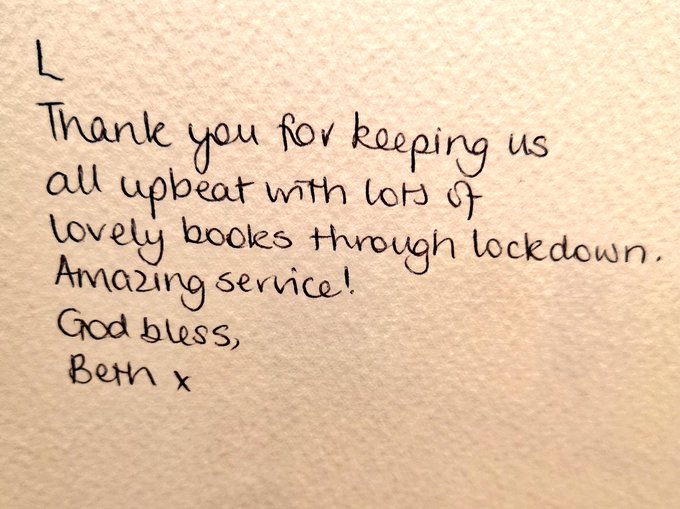 L
Thank you for keeping us
all upbeat with lots of
lovely books through lockdown.
Amazing service!
God bless,
Beth x